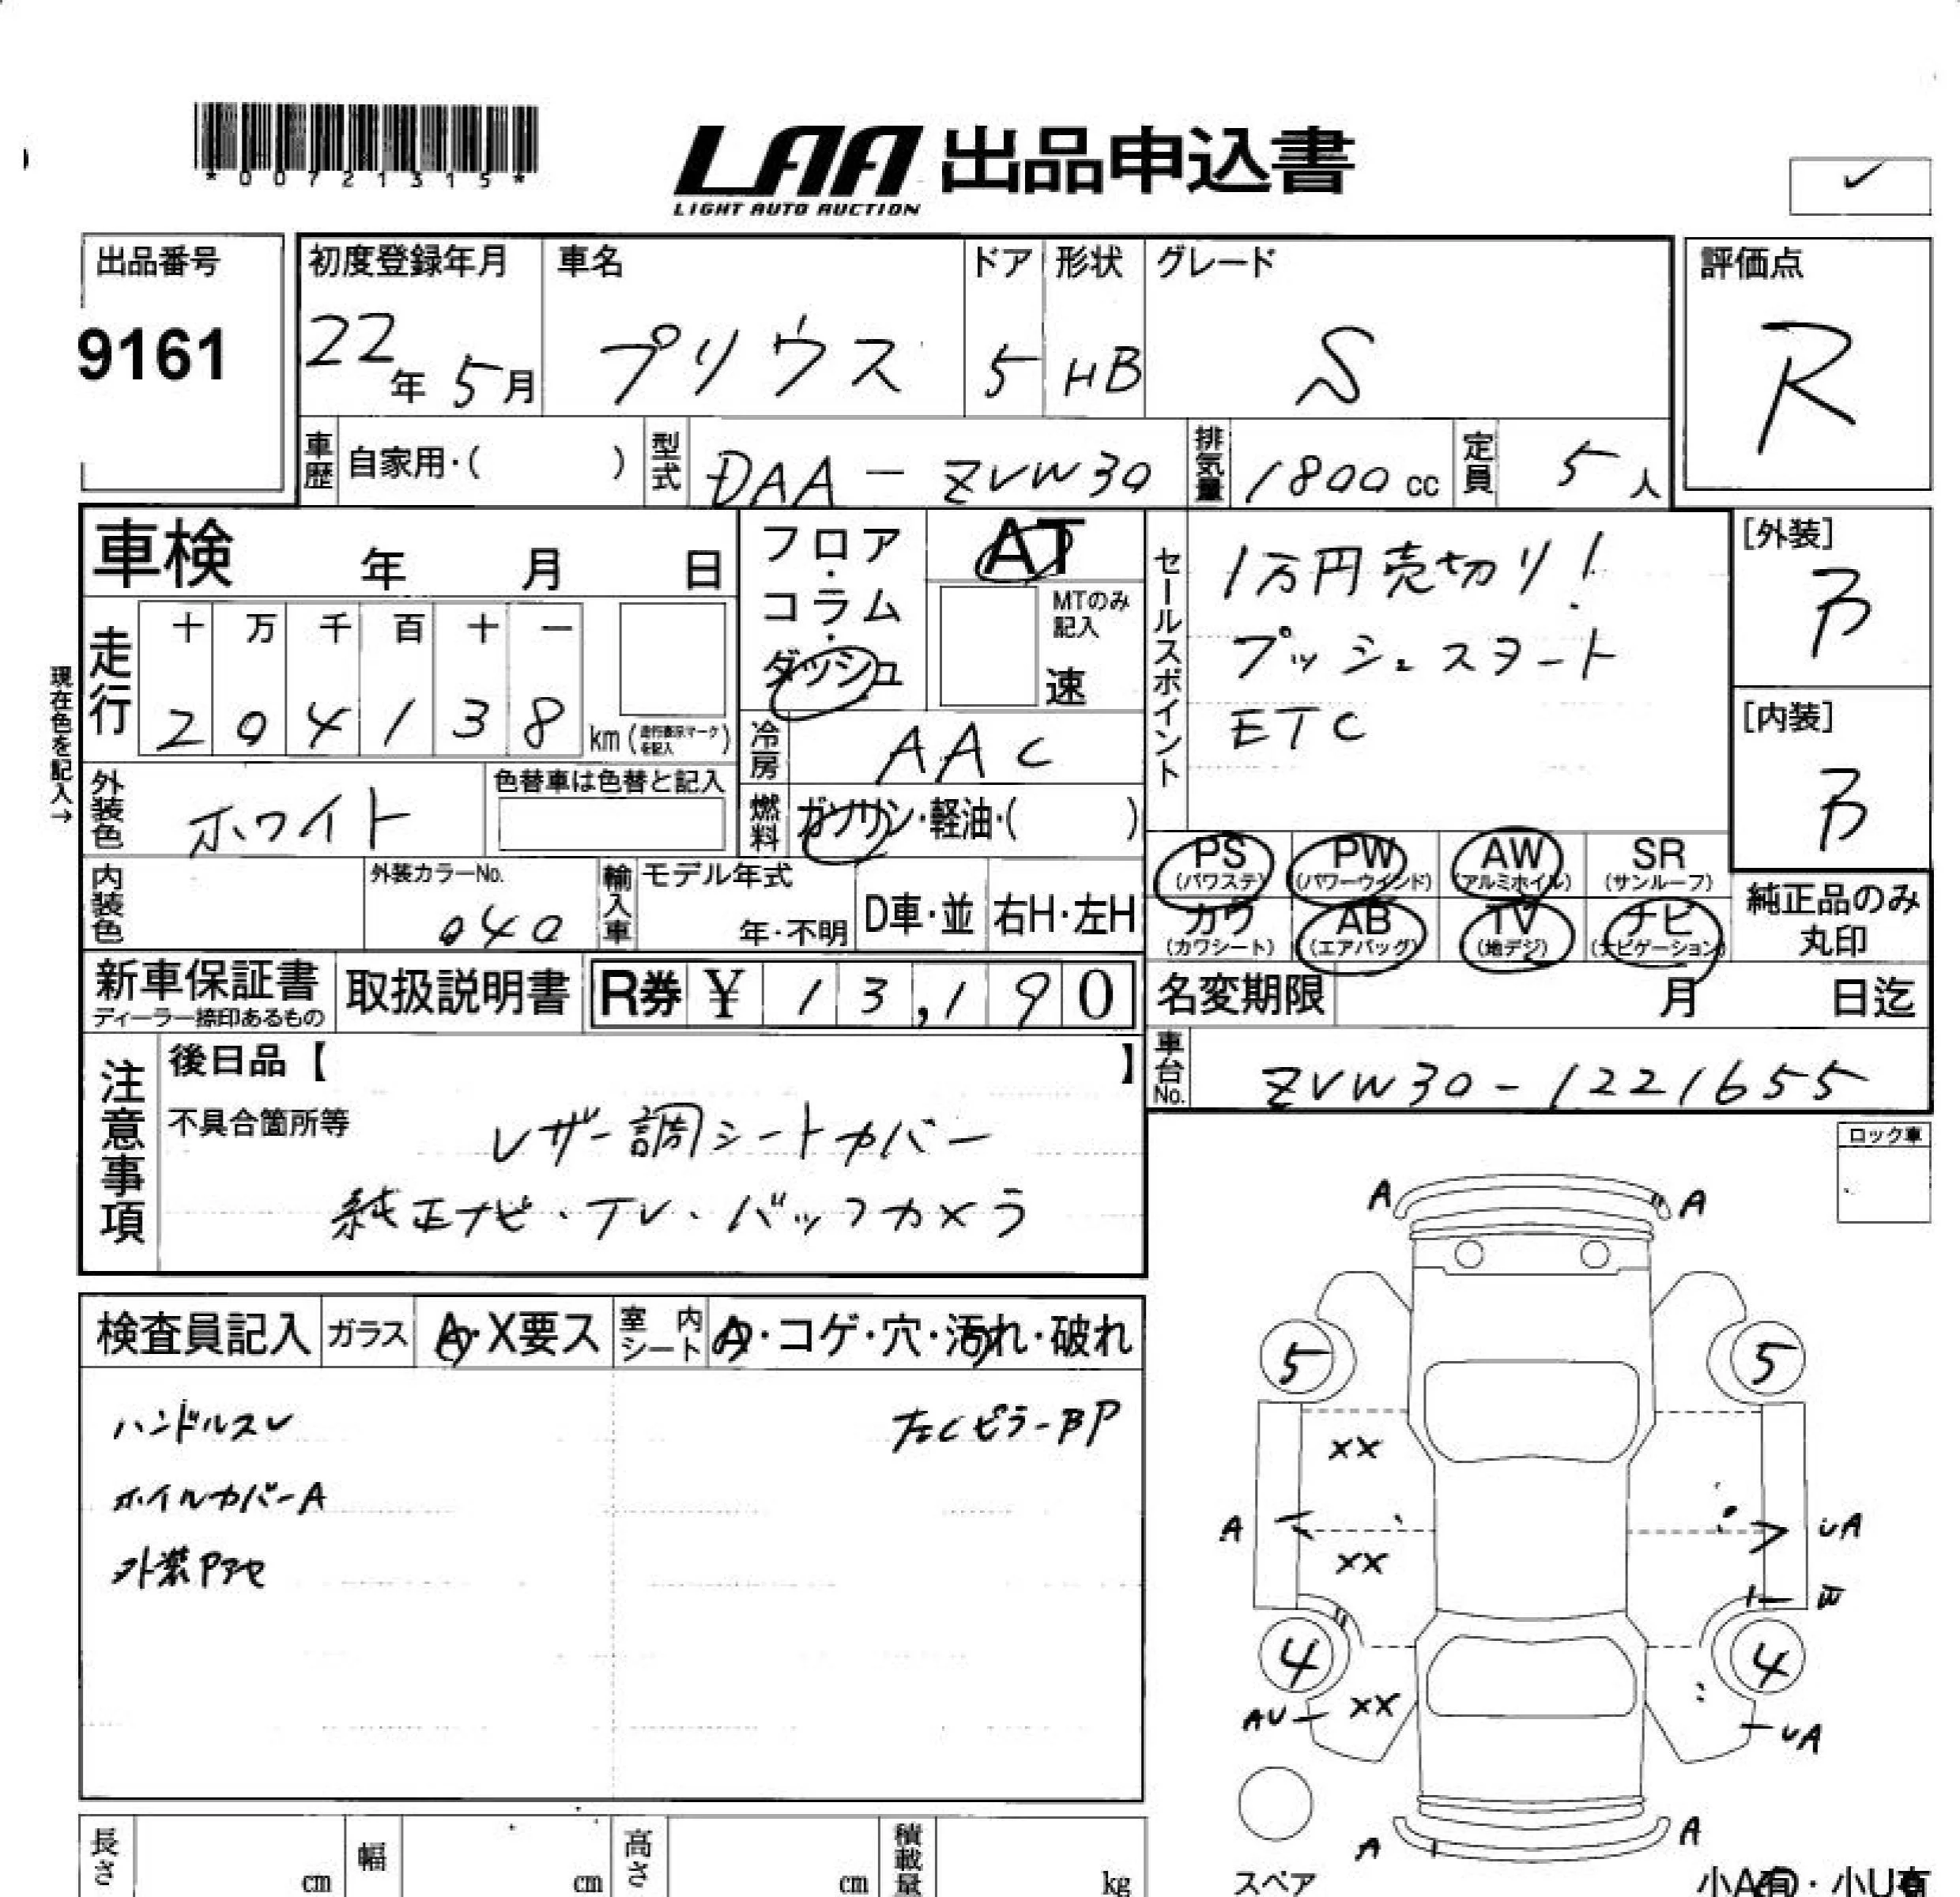 *00721315*
LAA 出品申込書
LIGHT AUTO AUCTION
出品番号
9161
初度登録年月
22年 5月
車名
プリウス
ドア
5
形状
HB
グレード
S
評価点
R
車歴 自家用・( )
型式 DAA-ZVW30
排気量 1800 cc
定員 5人
車検 年 月 日
走行
十 万 千 百 十 一
2 0 4 1 3 8 km
(走行表示マークを記入)
現在色を記入→
フロア・コラム・ダッシュ
AT
MTのみ記入
速
冷房 AAC
燃料 ガソリン・軽油・( )
セールスポイント
1万円売切り!
プッシュスタート
ETC
[外装]
B
[内装]
B
外装色 ホワイト
色替車は色替と記入
内装色
外装カラーNo.
040
輸入車
モデル年式
年・不明
D車・並
右H・左H
PS (パワステ)
PW (パワーウインド)
AW (アルミホイル)
SR (サンルーフ)
カワ (カワシート)
AB (エアバッグ)
TV (地デジ)
ナビ (ナビゲーション)
純正品のみ丸印
新車保証書
ディーラー捺印あるもの
取扱説明書
R券 ¥ 13,190
名変期限 月 日迄
車台No. ZVW30-1221655
注意事項
後日品【 】
不具合箇所等
レザー調シートカバー
純正ナビ・TV・バックカメラ
ロック車
検査員記入
ガラス A・X要ス
室内シート
・コゲ・穴・汚れ・破れ
ハンドルスレ
ホイルカバーA
外装Pアセ
左CピラーBP
A A
5 5
XX
A UA
XX
4 4
AU XX UA
A A
スペア
小A有・小U有
長さ cm
幅 cm
高さ cm
積載量 kg